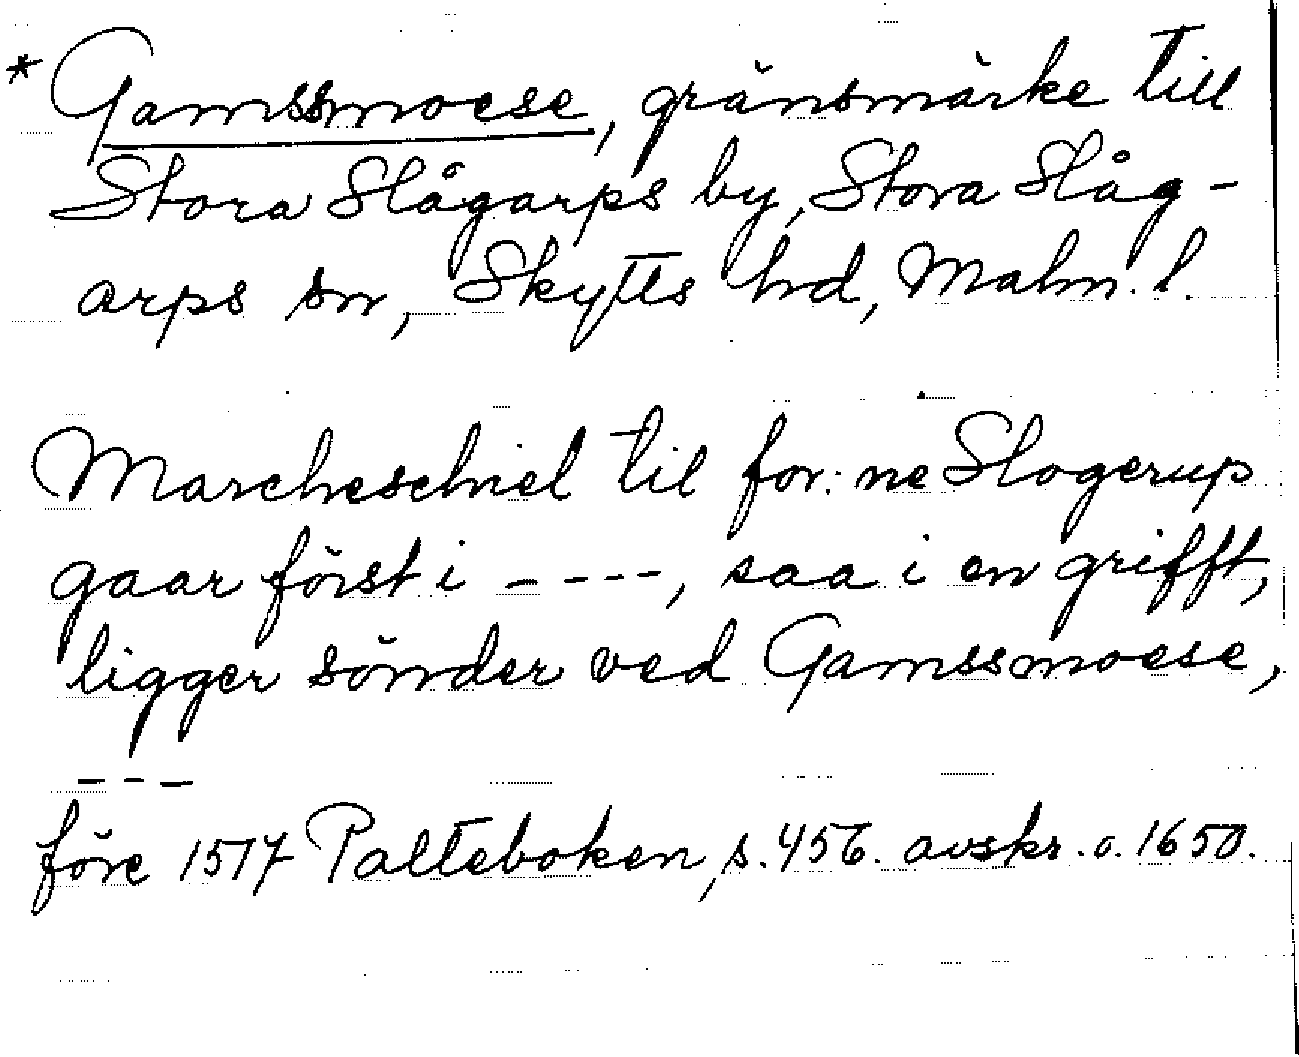 * Gamssmoese, gränsmärke till
Stora Slågarps by, Stora Slåg-
arps sn, Skytts hd, Malm. l.
Marcheschiel til for: ne Slogerup
gaar först i ----, saa i en grifft,
ligger sönder ved Gamssmoese,
---
före 1517 Palteboken, s. 456. avskr. o. 1650.